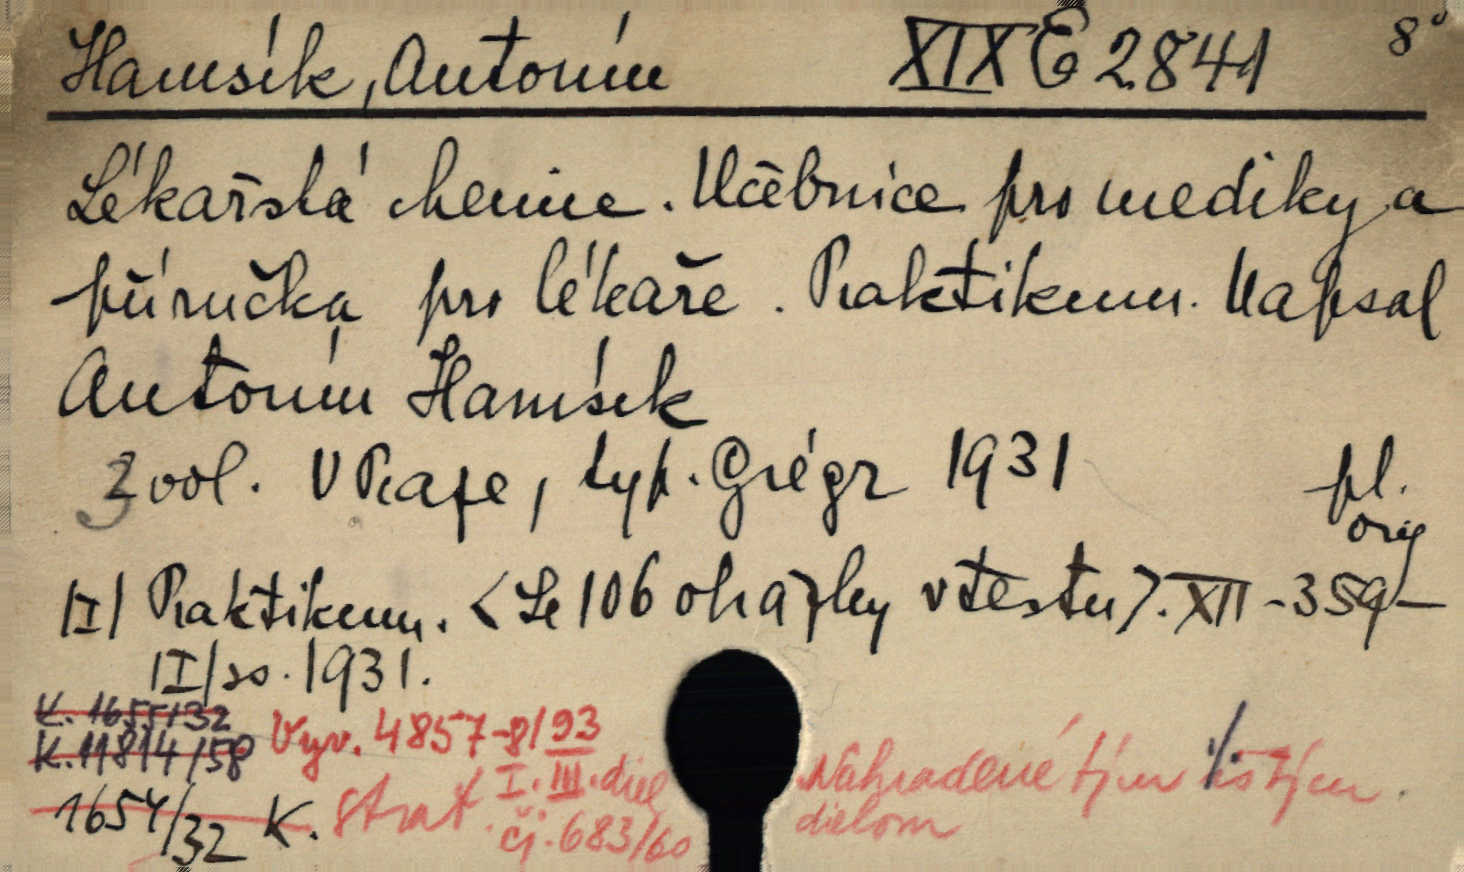 Hamsík, Antonín XIX E 2841 8°
Lékařská chemie. Učebnice pro mediky a
příručka pro lékaře. Praktikum. Napsal
Antonín Hamsík
3 vol. V Praze, typ. Grégr 1931 pl.
orig
II/ Praktikum. <Se 106 obrazky v textu>. XII - 359 -
II/so. 1931.
K. 1655/32
K. 11814/58 Vyr. 4857-8/93
1654/32 K. Strat. I. III. diel
čj. 683/60
Nahradené tým istým
dielom